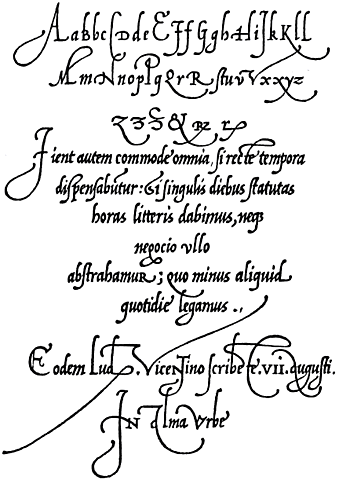 AabbcCDdeEFfGgbHiJkKll
MmNnopPqQrRſtuvVxxyz
Jient autem commode omnia, ſi recte tempora
diſpenſabuntur: Et ſi ſingulis diebus ſtatutas
horas litteris dabimus, neqз
negocio vllo
abſtrahamuR; quo minus aliquid
quotidie legamus .,
Eodem Lud. Vicentino ſcribente. VII. auguſti.
IN Alma Vrbe